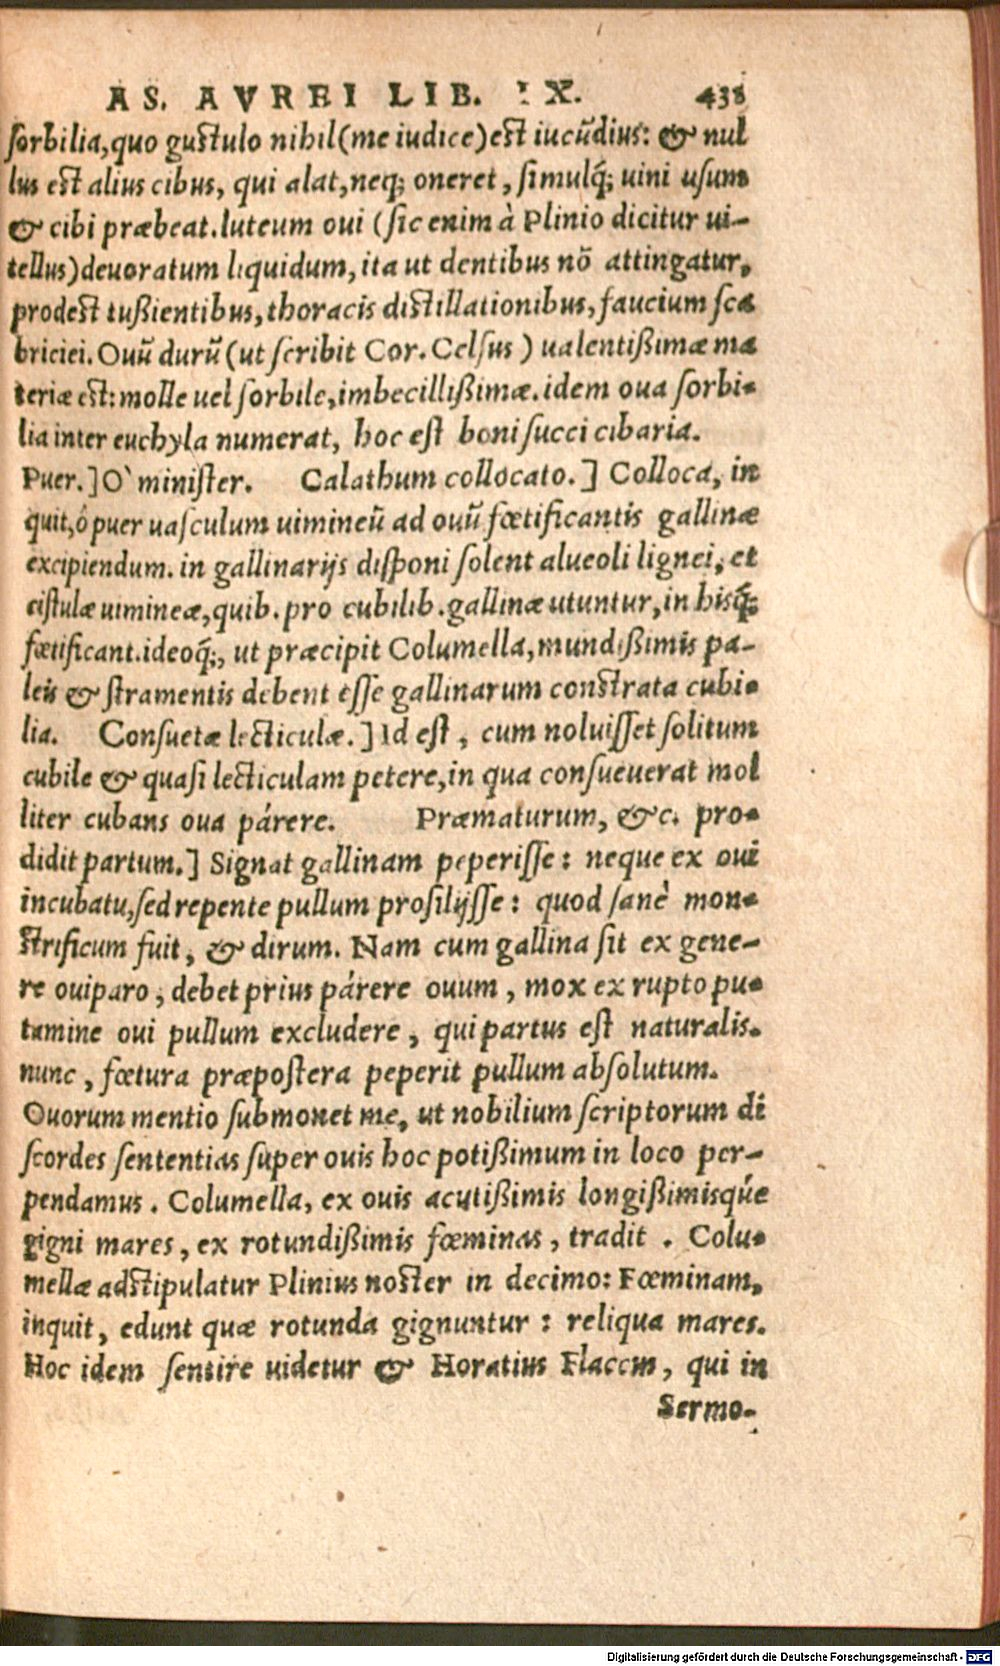 AS. AVREI LIB. IX. 438
sorbilia, quo gustulo nihil (me iudice) est iucũdius: & nul
lus est alius cibus, qui alat, neq; oneret, simulq́; uini usum
& cibi præbeat. luteum oui (sic enim à Plinio dicitur ui-
tellus) deuoratum liquidum, ita ut dentibus nõ attingatur,
prodest tußientibus, thoracis distillationibus, faucium sca
briciei. Ouũ durũ (ut scribit Cor. Celsus) ualentißimæ ma
teriæ est: molle uel sorbile, imbecillißimæ. idem oua sorbi-
lia inter euchyla numerat, hoc est boni succi cibaria.
Puer.] O` minister. Calathum collocato.] Colloca, in
quit, ô puer uasculum uimineũ ad ouũ fœtificantis gallinæ
excipiendum. in gallinarijs disponi solent alueoli lignei, et
cistulæ uimineæ, quib. pro cubilib. gallinæ utuntur, in hisq́;
fœtificant. ideoq́;, ut præcipit Columella, mundißimis pa-
leis & stramentis debent esse gallinarum constrata cubi-
lia. Consuetæ lecticulæ.] Id est, cum noluisset solitum
cubile & quasi lecticulam petere, in qua consueuerat mol
liter cubans oua párere. Præmaturum, &c. pro-
didit partum.] Signat gallinam peperisse: neque ex oui
incubatu, sed repente pullum prosilijsse: quod sanè mon-
strificum fuit, & dirum. Nam cum gallina sit ex gene-
re ouiparo, debet prius párere ouum, mox ex rupto pu-
tamine oui pullum excludere, qui partus est naturalis.
nunc, fœtura præpostera peperit pullum absolutum.
Quorum mentio submonet me, ut nobilium scriptorum di
scordes sententias super ouis hoc potißimum in loco per-
pendamus. Columella, ex ouis acutißimis longißimisq́ue
gigni mares, ex rotundißimis fœminas, tradit. Colu-
mellæ adstipulatur Plinius noster in decimo: Fœminam,
inquit, edunt quæ rotunda gignuntur: reliqua mares.
Hoc idem sentire uidetur & Horatius Flaccus, qui in
Sermo-
Digitalisierung gefördert durch die Deutsche Forschungsgemeinschaft - DFG